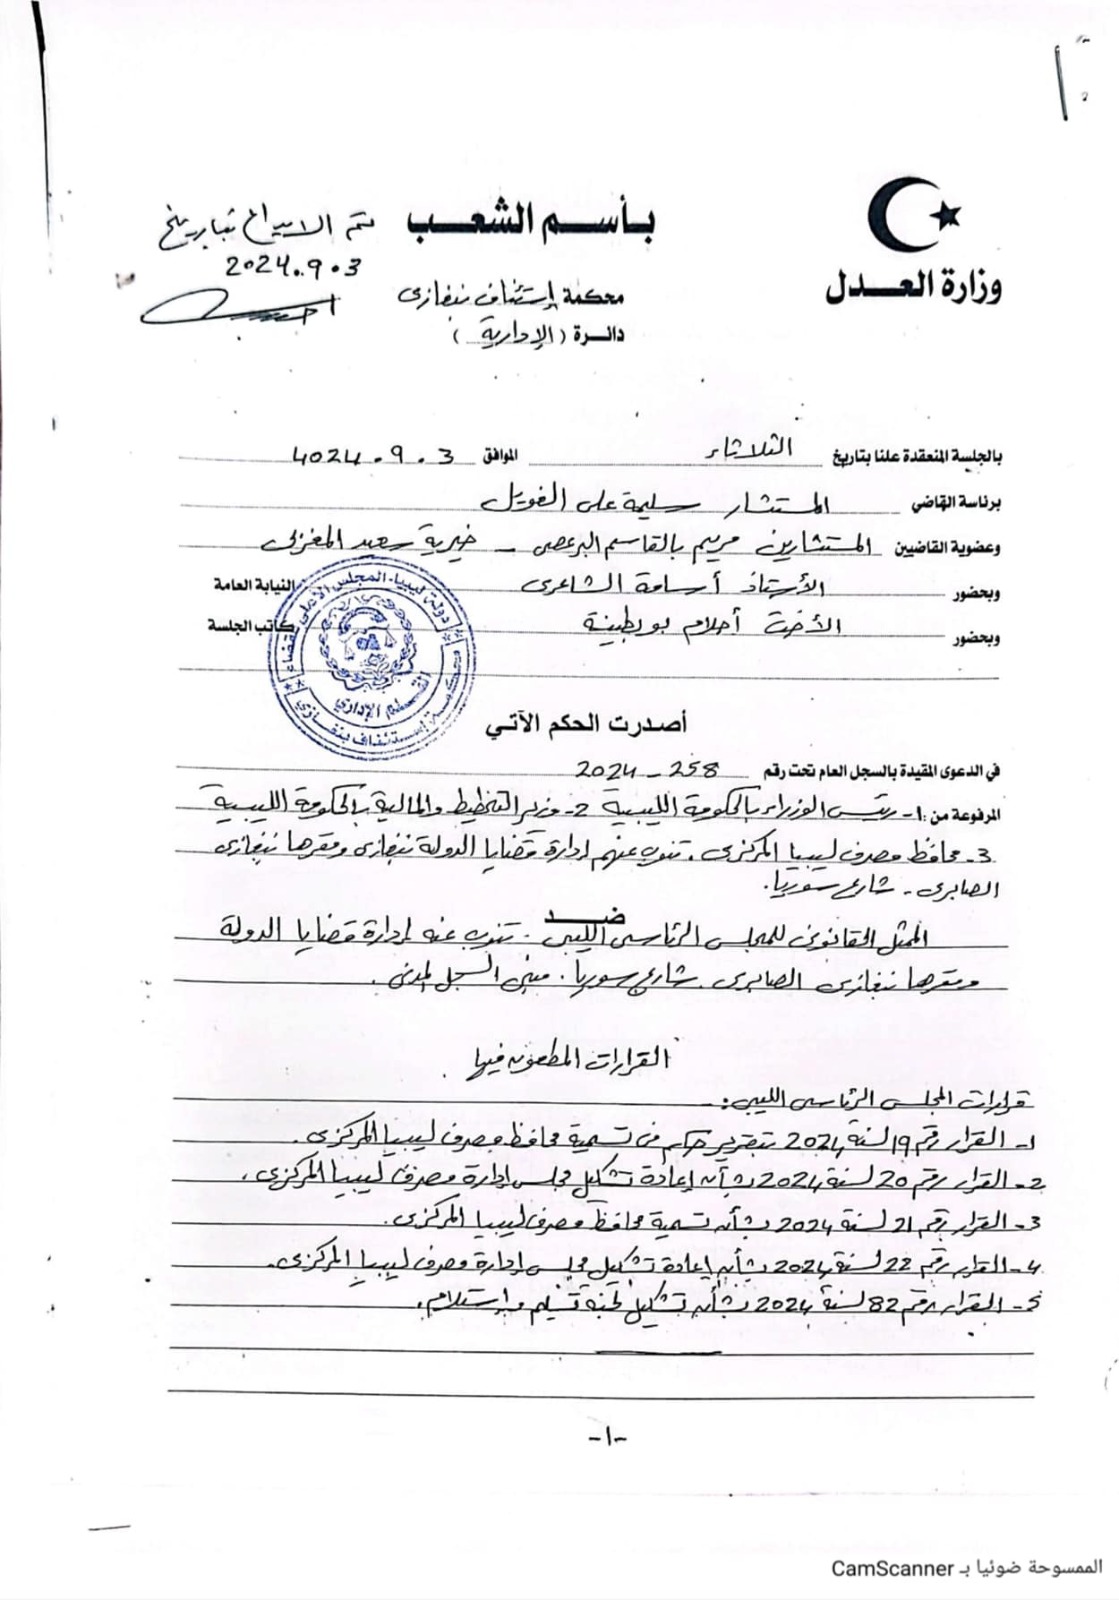 بأسم الشعب
تم الايداع بتاريخ
2024.9.3
وزارة العدل
محكمة إستئناف بنغازى
دائرة (الإدارية)
بالجلسة المنعقدة علنا بتاريخ الثلاثاء الموافق 3.9.2024
برئاسة القاضي المستشار سليمة على الغويل
وعضوية القاضيين المستشارين مريم بالقاسم البرعصى - خيرية سعد المغربى
وبحضور الأستاذ أسامة الشاعرى النيابة العامة
وبحضور الأخت أحلام بوبطينة كاتب الجلسة
دولة ليبيا - المجلس الأعلى للقضاء
محكمة إستئناف بنغازي
القسم الإداري
أصدرت الحكم الآتي
في الدعوى المقيدة بالسجل العام تحت رقم 258 - 2024
المرفوعة من: 1- رئيس الوزراء بالحكومة الليبية 2- وزير التخطيط والمالية بالحكومة الليبية
3- محافظ مصرف ليبيا المركزى. تنوب عنهم إدارة قضايا الدولة بنغازى ومقرها بنغازى
الصابرى - شارع سوريا.
ضد
الممثل القانونى للمجلس الرئاسى الليبى. تنوب عنه إدارة قضايا الدولة
ومقرها بنغازى الصابرى. شارع سوريا. مبنى السجل المدنى.
القرارات المطعون فيها
قرارات المجلس الرئاسى الليبى:-
1- القرار رقم 19 لسنة 2024 بتقرير حكم فى تسمية محافظ مصرف ليبيا المركزى.
2- القرار رقم 20 لسنة 2024 بشأن إعادة تشكيل مجلس إدارة مصرف ليبيا المركزى.
3- القرار رقم 21 لسنة 2024 بشأن تسمية محافظ مصرف ليبيا المركزى.
4- القرار رقم 22 لسنة 2024 بشأن إعادة تشكيل مجلس إدارة مصرف ليبيا المركزى.
5- القرار رقم 82 لسنة 2024 بشأن تشكيل لجنة تسليم وإستلام.
-1-
الممسوحة ضوئيا بـ CamScanner